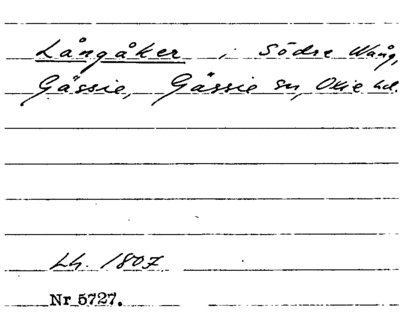 Långåker i Södre Wång,
Gässie, Gässie sn, Oxie hd.
Lh. 1807
Nr 5727.